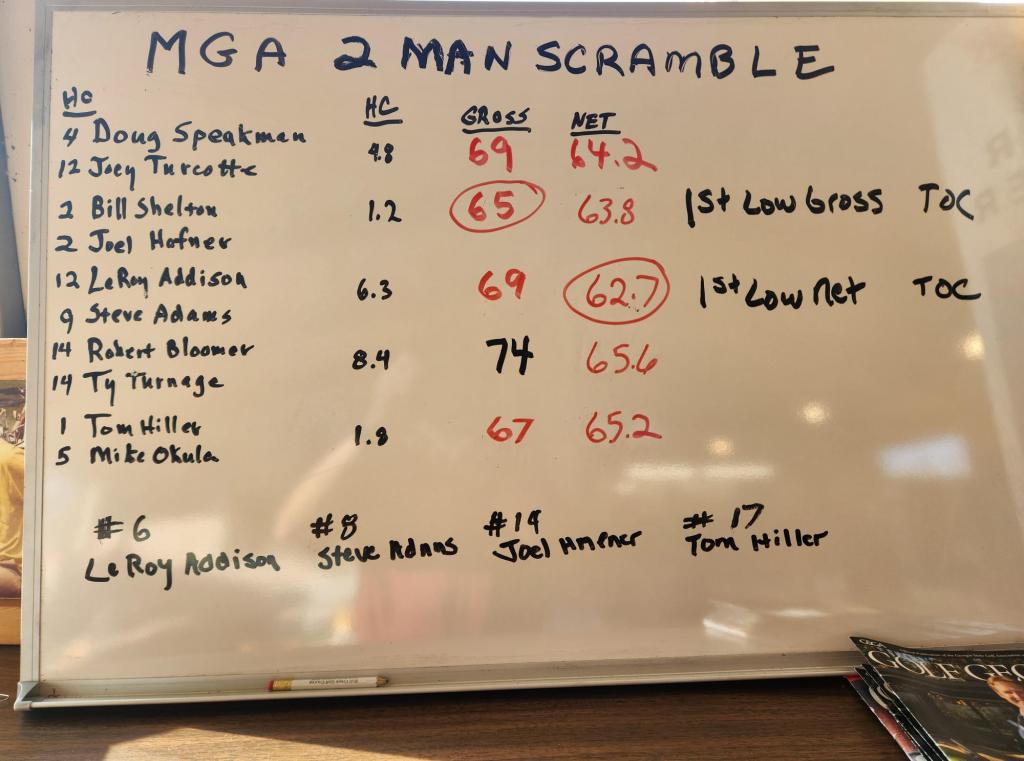 MGA 2 MAN SCRAMBLE
HC HC GROSS NET
4 Doug Speakman 4.8 69 64.2
12 Joey Turcotte
2 Bill Shelton 1.2 65 63.8 1st Low Gross TOC
2 Joel Hafner
12 LeRoy Addison 6.3 69 62.7 1st Low Net TOC
9 Steve Adams
14 Robert Bloomer 8.4 74 65.6
14 Ty Turnage
1 Tom Hiller 1.8 67 65.2
5 Mike Okula
#6 #8 #14 #17
LeRoy Addison Steve Adams Joel Hafner Tom Hiller
GOLF